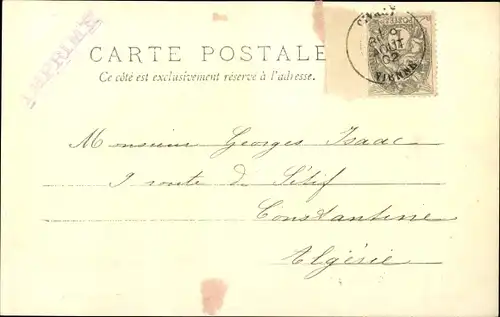 IMPRIMÉ
CARTE POSTALE
Ce côté est exclusivement réservé à l'adresse.
AOUT
02
VIENNE
Monsieur Georges Isaac
9 route de Sétif
Constantine
Algérie